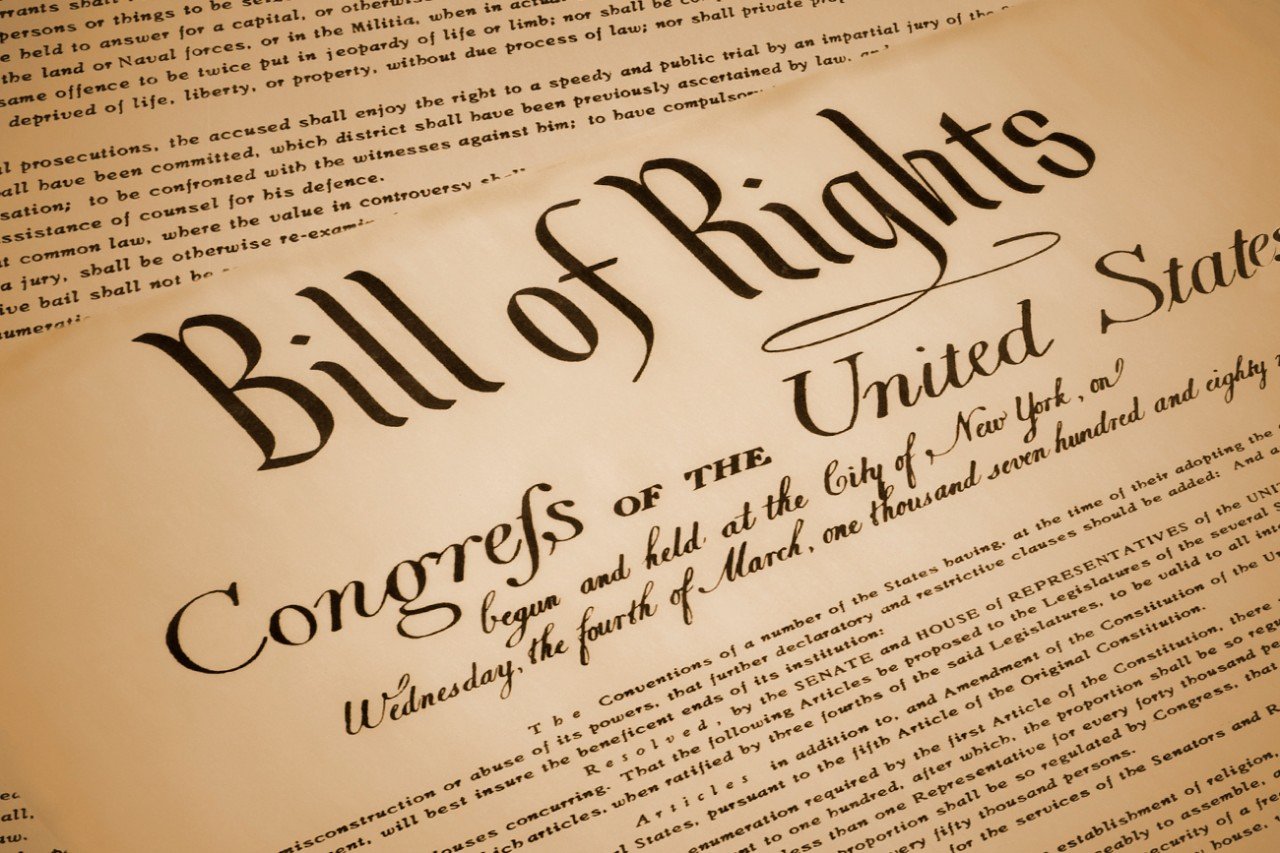 shall
persons or things to be
held to answer for a capital, or
the land or Naval forces, or in the Militia, when in
same offence to be twice put in jeopardy of life or limb; nor shall be
deprived of life, liberty, or property, without due process of law; nor shall private
prosecutions, the accused shall enjoy the right to a speedy and public trial by an impartial jury of the
have been committed, which district shall have been previously ascertained by law,
to be confronted with the witnesses against him; to have
of counsel for his defence.
common law, where the value in controversy
a jury, shall be otherwise
bail shall not be
Bill of Rights
Congreſs OF THE United States
begun and held at the City of New York, on
Wednesday, the fourth of March, one thousand seven hundred and eighty
The Conventions of a number of the States having, at the time of their adopting the
of its powers, that further declaratory and restrictive clauses should be added: And
misconstruction or abuse
will best insure the beneficent ends of its institution:
Resolved, by the SENATE and HOUSE of REPRESENTATIVES of the
concurring. That the following Articles be proposed to the Legislatures of the several
articles, when ratified by three fourths of the said Legislatures, to be valid to all
Articles in addition to, and Amendment of the Constitution of the
States, pursuant to the fifth Article of the Original Constitution.
required by the first Article of the Constitution, there
to one hundred, after which, the proportion shall be so
less than one Representative for every forty thousand
proportion shall be so regulated by Congress, that
fifty thousand persons.
for the services of the Senators and
establishment of religion,
to assemble,
security of a
house,